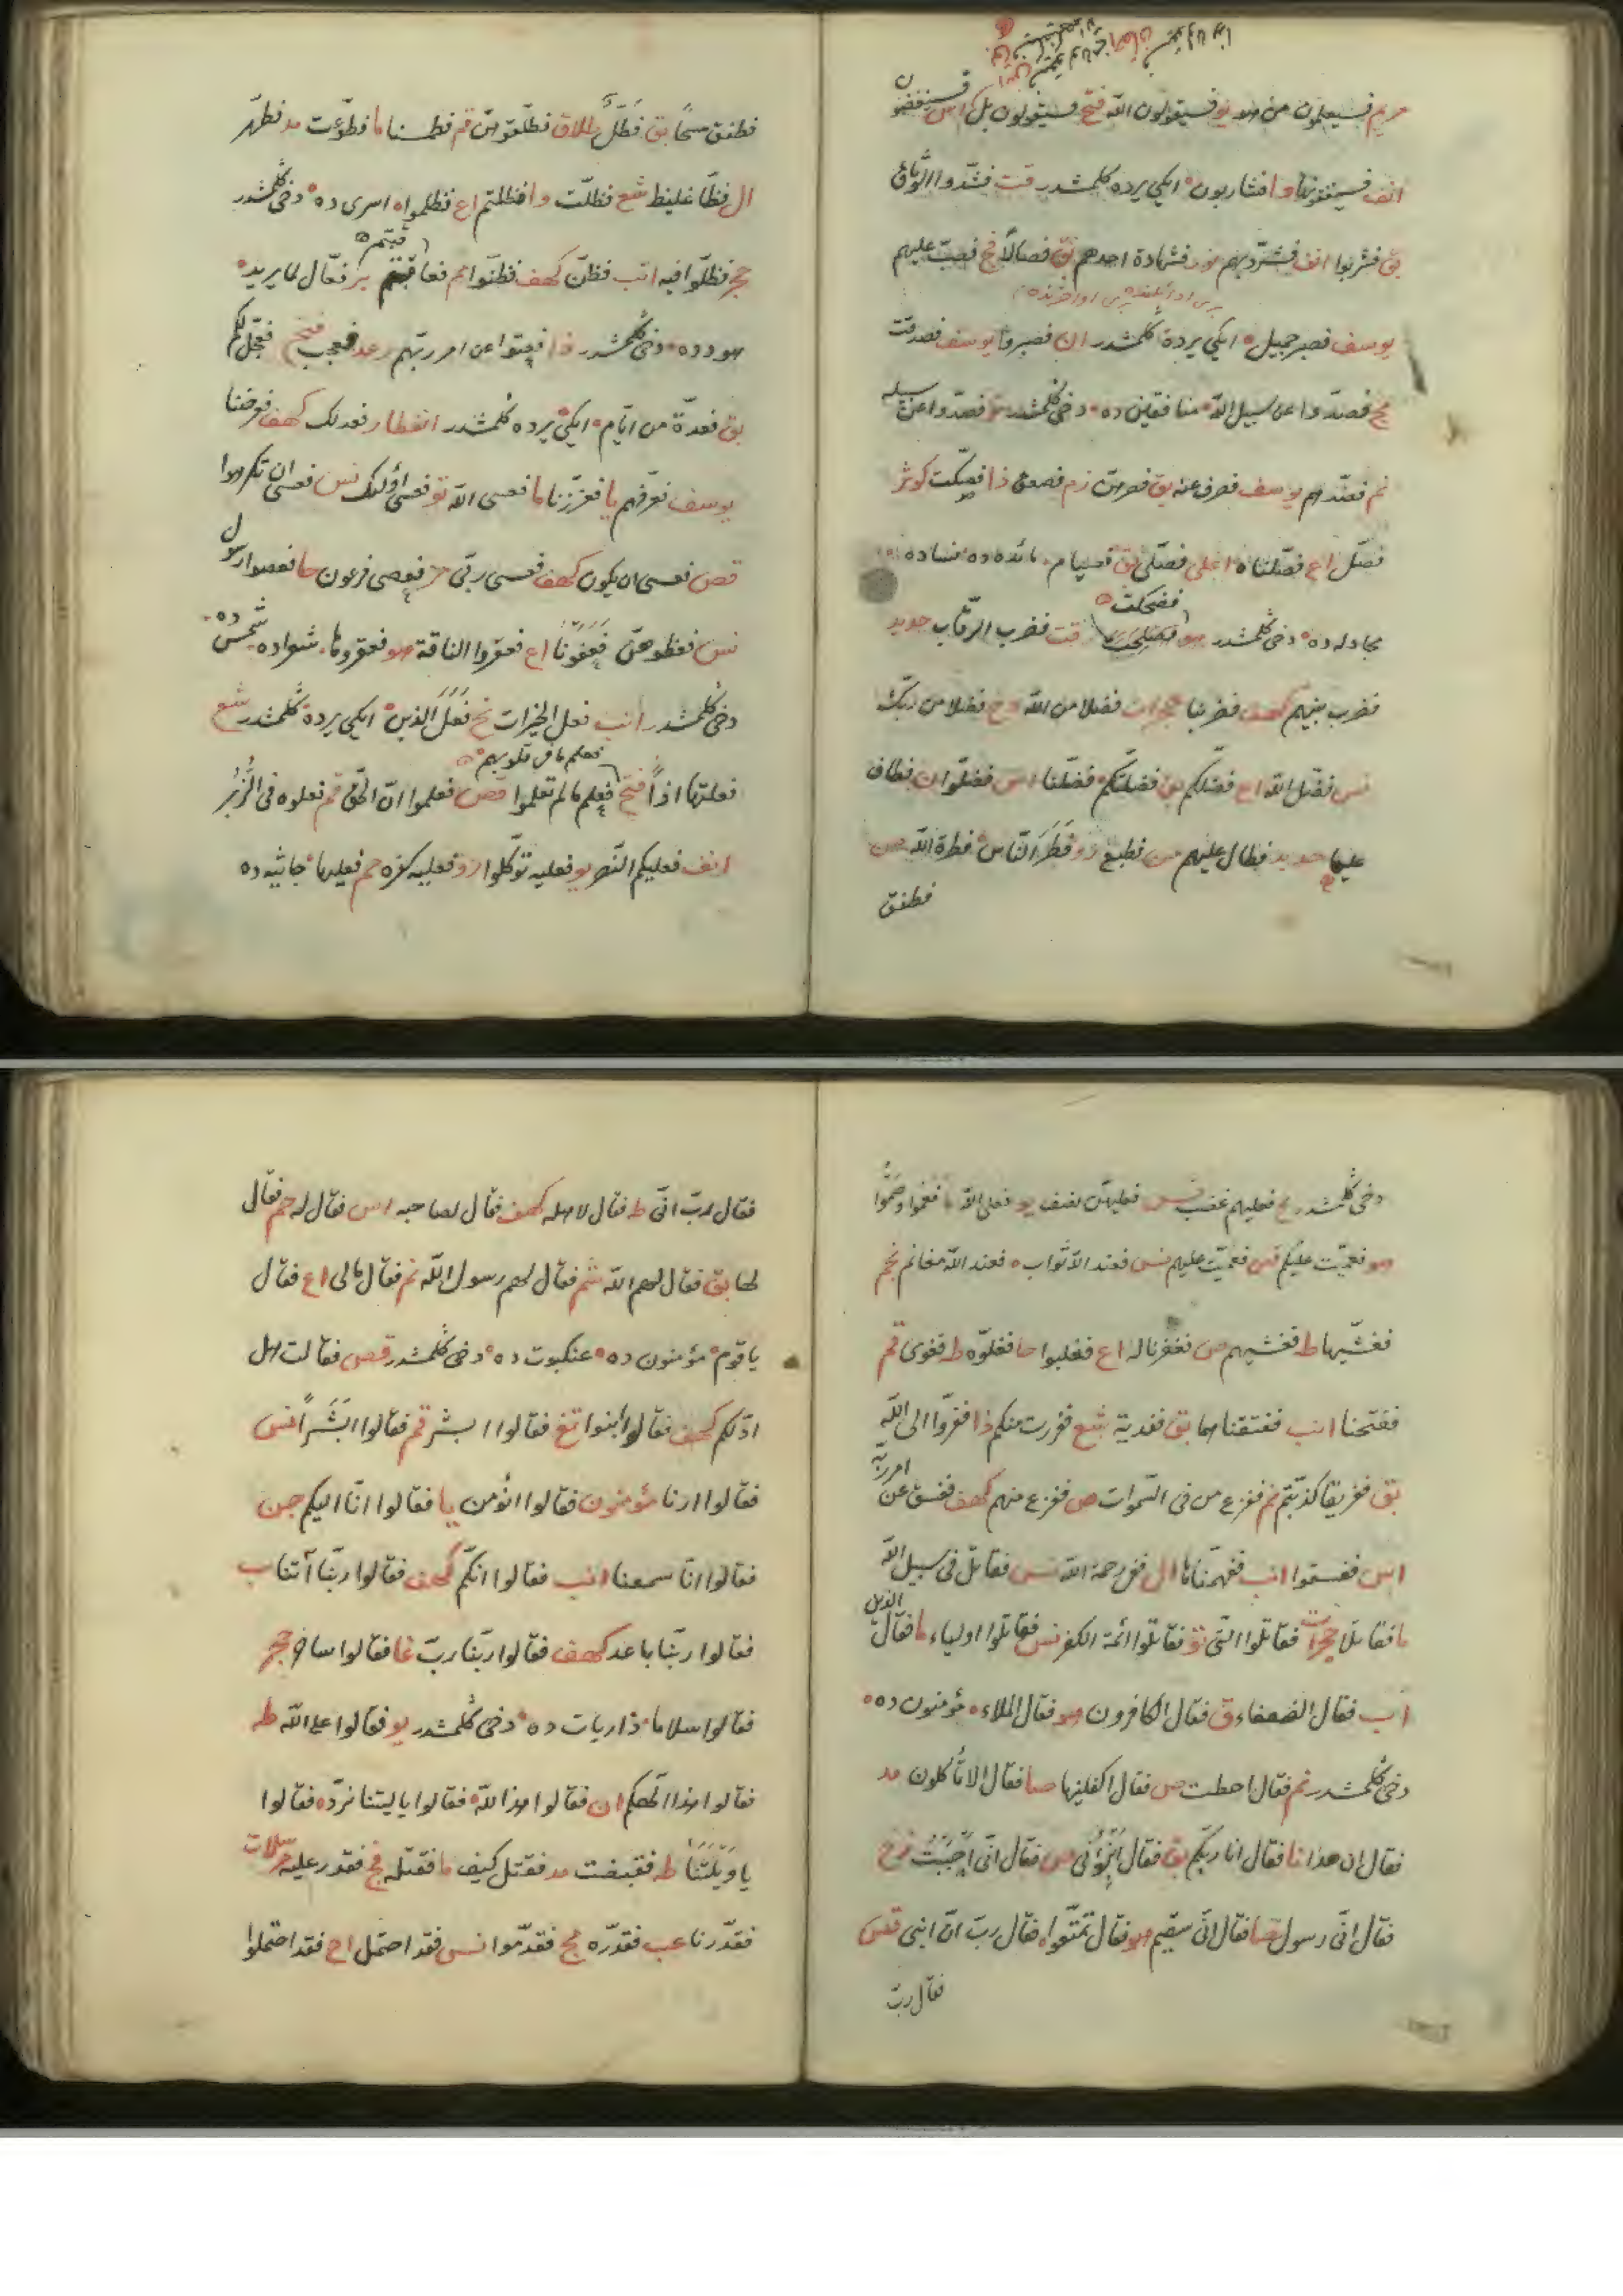 مريم فسيعلمون من هو يو فسيقولون الله فتح فسيقولون بل اس فسينغضون
انف فسينفقونها وا فشاربون ايكی يرده كلمشدر قت فشدوا الوثاق
بق فشربوا انف فشرد بهم نور فشهادة احدهم بق فصالا فج فصب عليهم
يوسف فصبر جميل ايكی يرده كلمشدر ان فصبروا يوسف فصدقت
مج فصدوا عن سبيل الله منافقين ده دخی كلمشدر تو فصدوا عن سبيله
نم فصدهم يوسف فصرف عنه بق فصرهن زم فصعق ذا فصكت كوثر
فصل اع فصلناه اعلی فصلی بق فصيام مائده ده نساده
مجادله ده دخی كلمشدر هو فضحكت قت فضرب الرقاب حديد
فضرب بينهم كهف فضربنا حجرات فضلا من الله دخ فضلا من ربك
نس فضل الله اع فضلكم بق فضلتكم فضلنا اس فضلوا ن فطاف
عليها حديد فطال عليهم من فطبع رو فطر الناس فطرة الله ص
فطفق
فطفق مسحا بق فطل طلاق فطلقوهن قم فطمسنا ما فطوعت مد فطهر
ال فظا غليظ شع فظلت وا فظلتم اع فظلموا اسری ده دخی كلمشدر
حجر فظلوا فيه انب فظن كهف فظنوا نحم فعاقبتم بر فعال لما يريد
هود ده دخی كلمشدر ذا فعتوا عن امر ربهم رعد فعجب فتح فعجل لكم
بق فعدة من ايام ايكی يرده كلمشدر انفطار فعدلك كهف فعرضنا
يوسف فعرفهم يا فعززنا ما فعسی الله تو فعسی اولئك نس فعسی ان تكرهوا
قص فعسی ان يكون كهف فعسی ربی مز فعصی فرعون حا فعصوا رسول
نس فعظوهن فعفونا اع فعقروا الناقة هو فعقروها شعراده شمس ده
دخی كلمشدر انب فعل الخيرات نح فعل الذين ايكی يرده كلمشدر شع
فعلتها اذا فتح فعلم ما لم تعلموا فعلم ما فی قلوبهم قص فعلموا ان الحق قم فعلوه فی الزبر
انف فعليكم النصر يو فعليه توكلوا رو فعليه كفره حم فعليها جاثيه ده
دخی كلمشدر نح فعليهم غضب نس فعليهن نصف يو فعلی الله ما فعموا وصموا
هو فعميت عليكم قص فعميت عليهم نس فعند الله ثواب فعند الله مغانم نجم
فغشيها ط فغشيهم ص فغفرنا له اع فغلبوا حا فغلوه ط فغوی قم
ففتحنا انب ففتقناهما بق ففدية شع ففررت منكم ذا ففروا الی الله
بق ففريقا كذبتم نم ففزع من فی السموات ص ففزع منهم كهف ففسق عن امر ربه
اس ففسقوا انب ففهمناها ال ففی رحمة الله نس فقاتل فی سبيل الله
ما فقاتلا حجرات فقاتلوا التی تو فقاتلوا ائمة الكفر نس فقاتلوا اولياء ما فقال الذين
اب فقال الضعفاء ق فقال الكافرون هو فقال الملاء مؤمنون ده
دخی كلمشدر نم فقال احطت ص فقال اكفلنيها صا فقال الا تأكلون مد
فقال ان هذا نا فقال انا ربكم بق فقال انبؤنی ص فقال انی احببت زخ
فقال انی رسول صا فقال انی سقيم هو فقال تمتعوا فقال رب ان ابنی قص
فقال رب
فقال رب انی ط فقال لاهله كهف فقال لصاحبه اس فقال له حم فقال
لها بق فقال لهم الله شم فقال لهم رسول الله نم فقال مالی اع فقال
يا قوم مؤمنون ده عنكبوت ده دخی كلمشدر قص فقالت هل
ادلكم كهف فقالوا ابنوا تغ فقالوا ابشر قم فقالوا ابشرا نس
فقالوا ارنا مؤمنون فقالوا انؤمن يا فقالوا انا اليكم جن
فقالوا انا سمعنا انب فقالوا انكم كهف فقالوا ربنا آتنا سب
فقالوا ربنا باعد كهف فقالوا ربنا رب غا فقالوا ساحر حجر
فقالوا سلاما ذاريات ده دخی كلمشدر يو فقالوا علی الله طه
فقالوا هذا الهكم ان فقالوا هذا لله فقالوا يا ليتنا نرد فقالوا
يا ويلتنا طه فقبضت مد فقتل كيف ما فقتله فج فقدر عليه مرسلات
فقدرنا عب فقدره مج فقدموا نس فقد احتمل اح فقد احتملوا